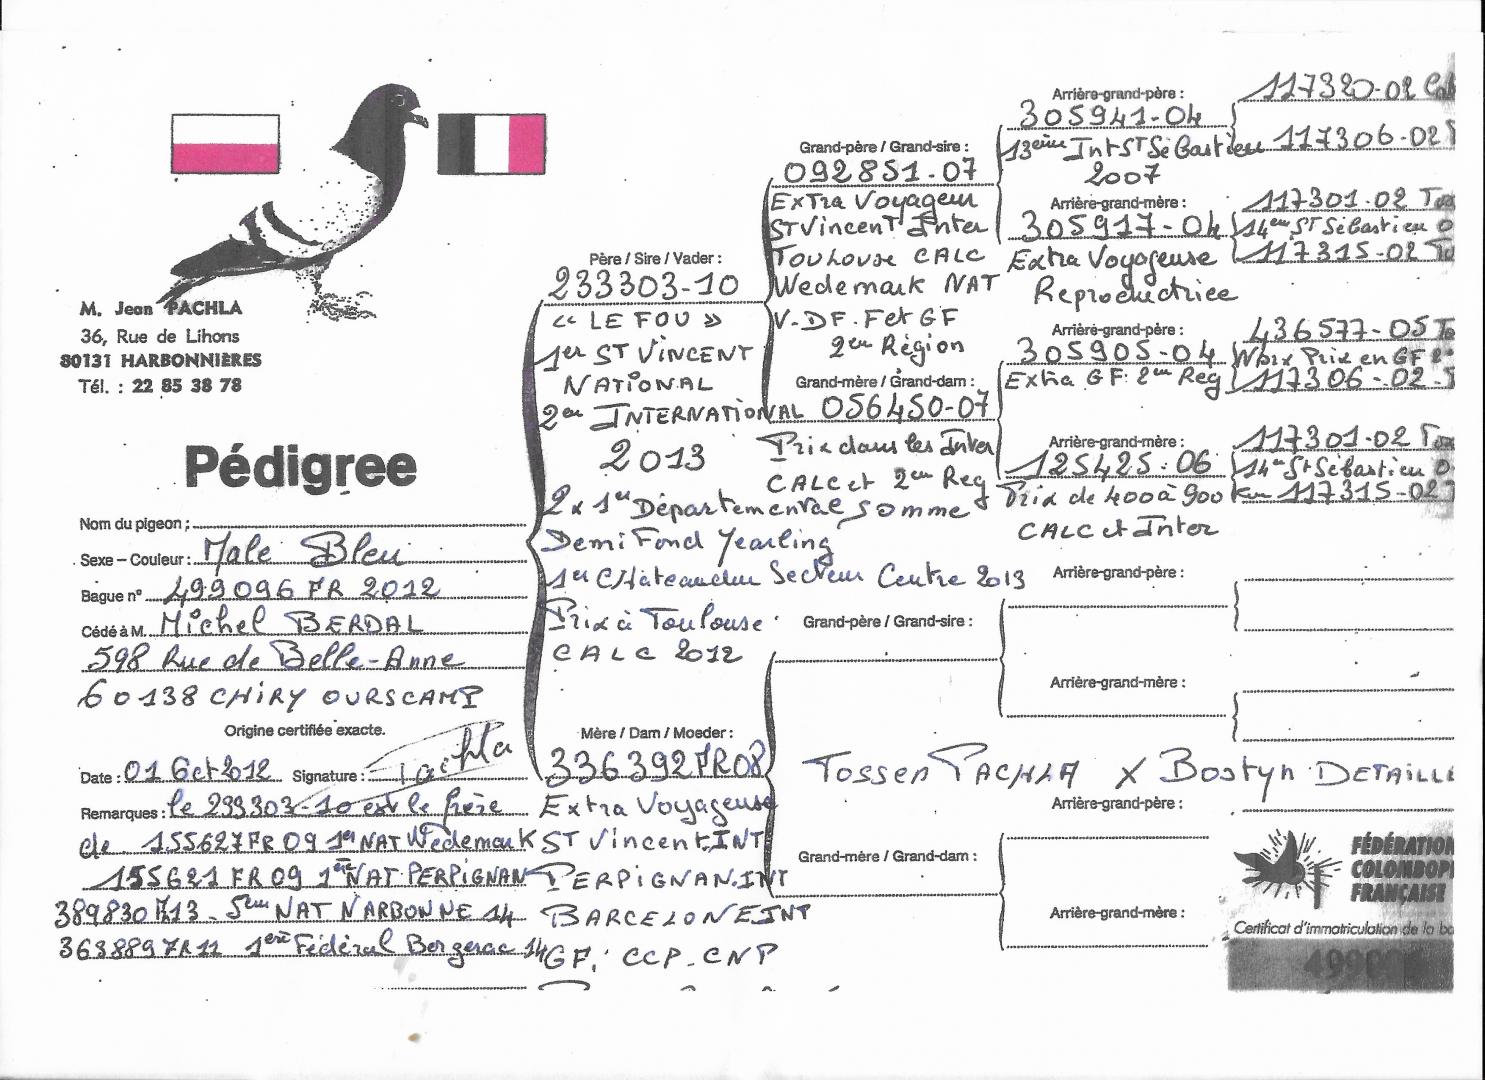 M. Jean PACHLA
36, Rue de Lihons
80131 HARBONNIÈRES
Tél. : 22 85 38 78
Pédigree
Nom du pigeon :
Sexe – Couleur : Male Bleu
Bague n° 499096 FR 2012
Cédé à M. Michel BERDAL
598 Rue de Belle-Anne
60138 CHIRY OURSCAMP
Origine certifiée exacte.
Date : 01 Oct 2012 Signature : Pachla
Remarques : le 233303-10 est le frère
de 155627 FR 09 1er NAT Wedemark
155621 FR 09 1ère NAT PERPIGNAN
389830 F13 - 5ème NAT NARBONNE 14
363889 FR 11 1ère Fédéral Bergerac 14
Père / Sire / Vader :
233303-10
« LE FOU »
1er ST VINCENT
NATIONAL
2en INTERNATIONAL
2013
2 x 1er Départementale Somme
Demi Fond Yearling
1er Châteaudun Secteur Centre 2013
Prix à Toulouse
CALC 2012
Mère / Dam / Moeder :
336392 FR 08
Extra Voyageuse
ST Vincent.INT
PERPIGNAN.INT
BARCELONE INT
GF. CCP-CNP
Grand-père / Grand-sire :
092851-07
Extra Voyageur
ST Vincent Inter
Toulouse CALC
Wedemark NAT
V-DF. F et GF
2en Région
Grand-mère / Grand-dam :
056450-07
Prix dans les Inter
CALC et 2en Reg
Grand-père / Grand-sire :
Tossen PACHLA X Bostyn DETAILLE
Grand-mère / Grand-dam :
Arrière-grand-père :
305941-04
13ème Int ST Sébastien
2007
Arrière-grand-mère :
305917-04
Extra Voyageuse
Reproductrice
Arrière-grand-père :
305905-04
Extra GF. 2en Reg
Arrière-grand-mère :
125425-06
Prix de 400 à 900 km
CALC et Inter
Arrière-grand-père :
Arrière-grand-mère :
Arrière-grand-père :
Arrière-grand-mère :
117320-02
117306-02
117301-02
14en ST Sébastien
117315-02
436577-05
Prix en GF
117306-02
117301-02
14en St Sébastien
117315-02
FÉDÉRATION
COLOMBOP
FRANÇAISE
Certificat d'immatriculation de la